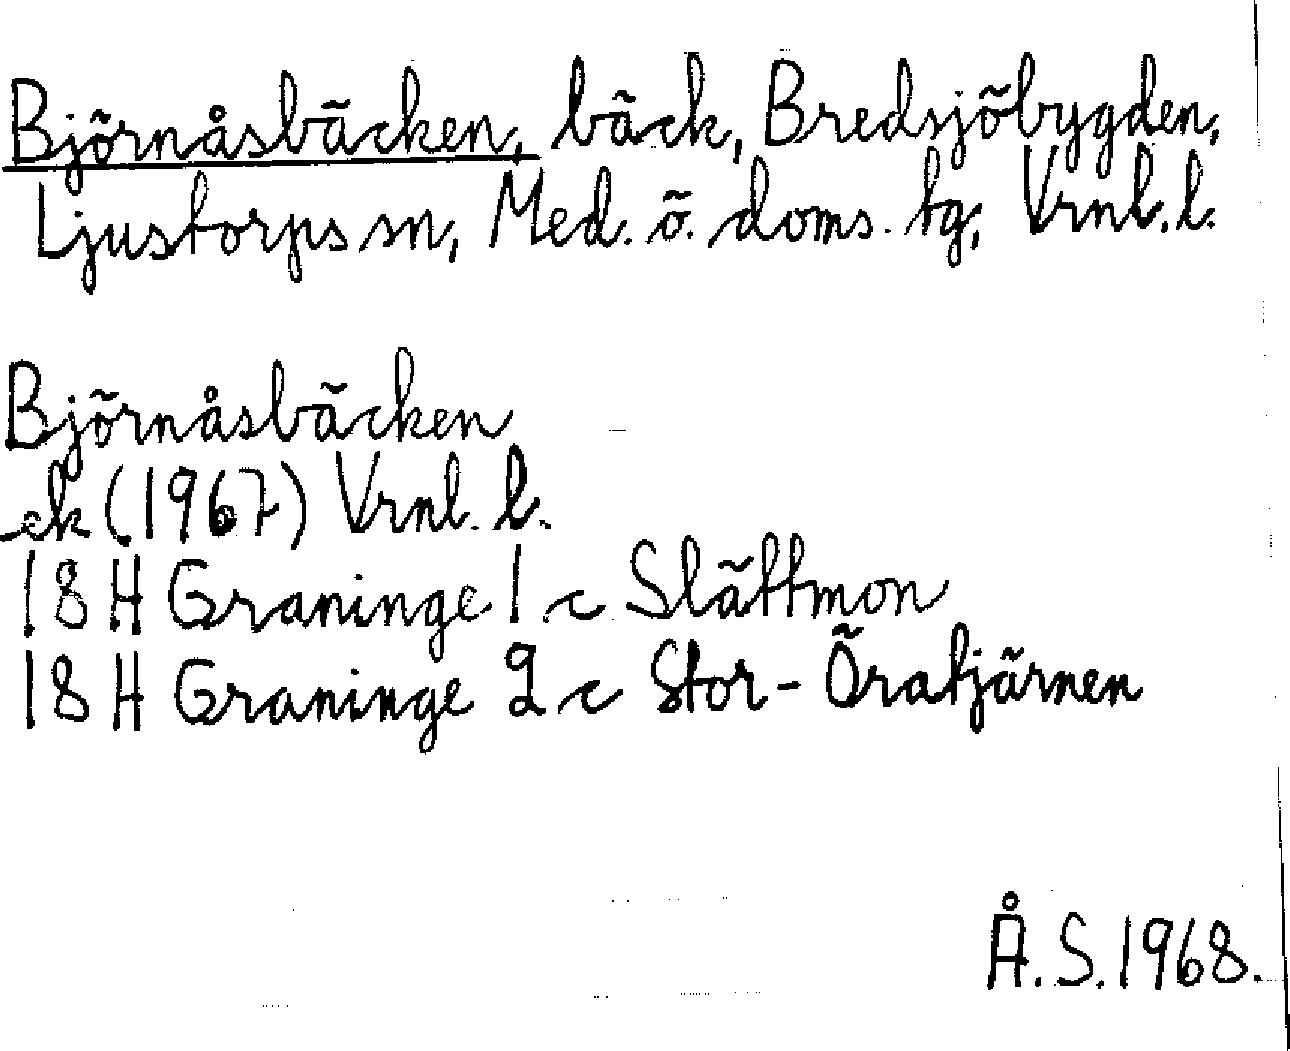 Björnåsbäcken, bäck, Bredsjöbygden,
Ljustorps sn, Med. ö. doms. tg, Vrnl. l.
Björnåsbäcken
ek (1967) Vrnl. l.
18 H Graninge 1 c Slättmon
18 H Graninge 2 c Stor-Öratjärnen
Å. S. 1968.